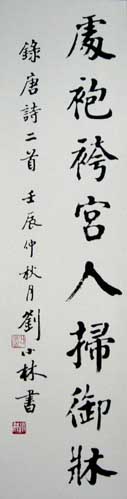 處袍袴宮人掃御牀
錄唐詩二首 壬辰仲秋月 劉小林書